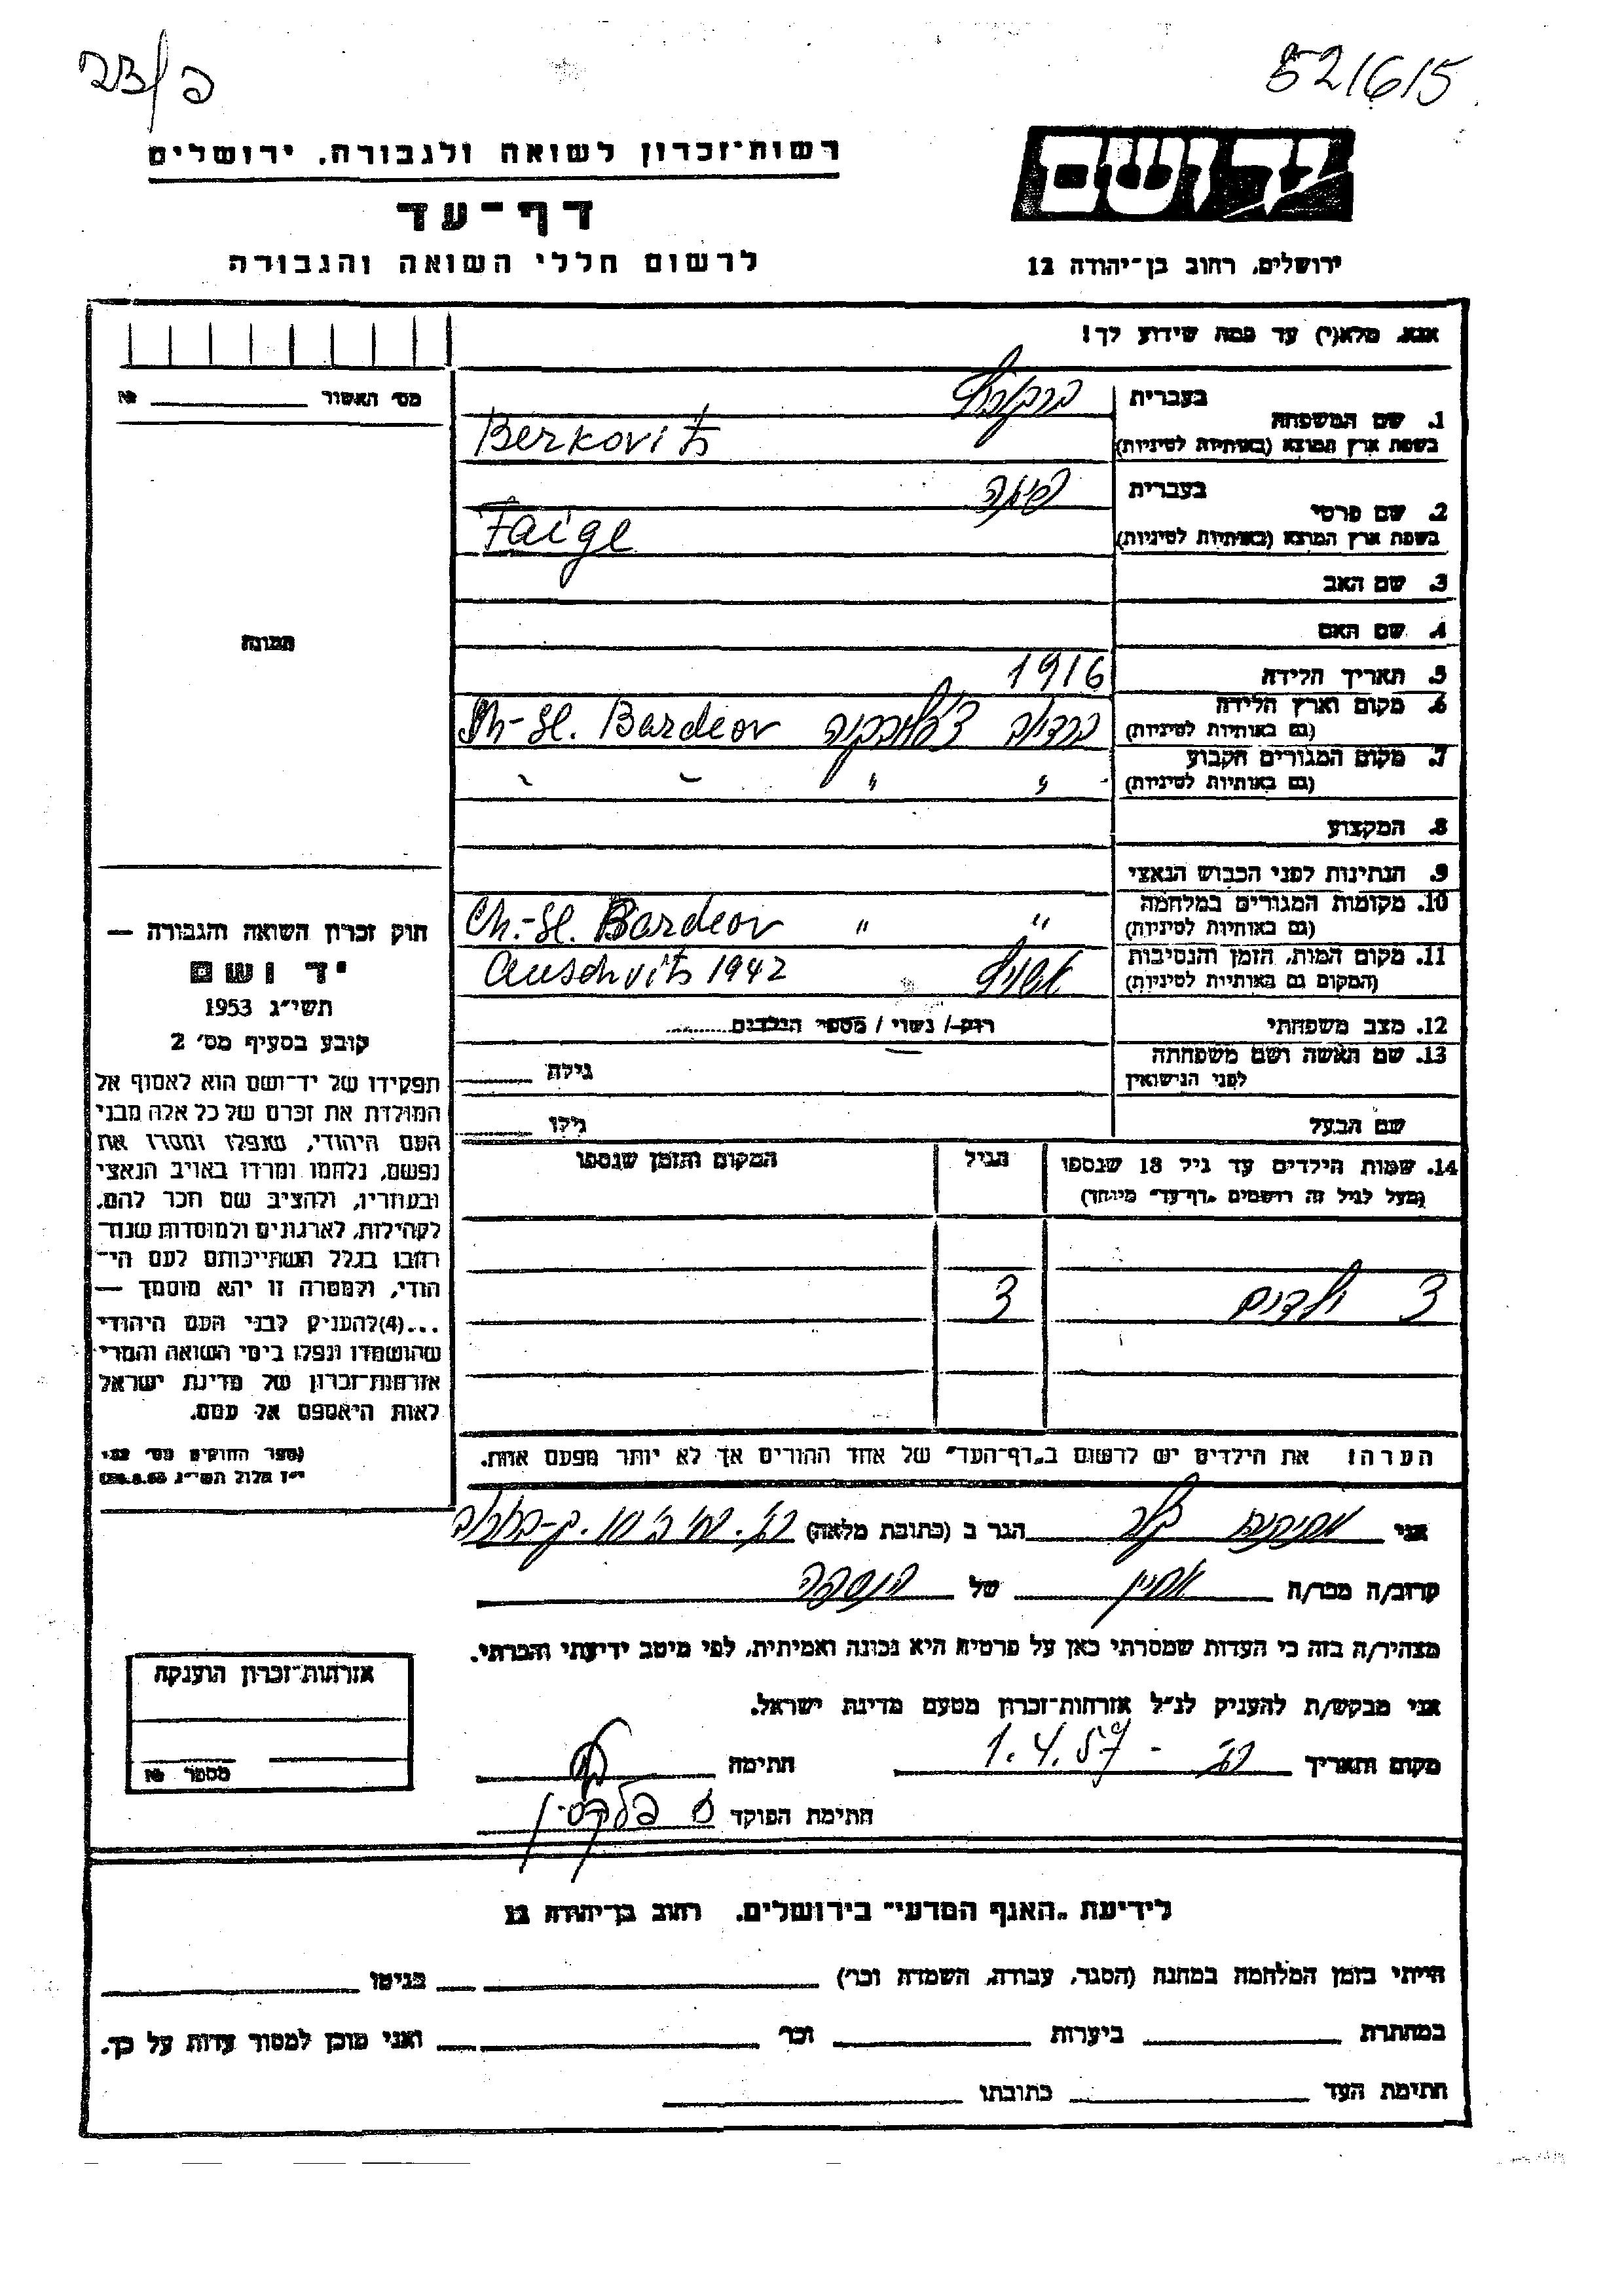 52/6/5
רשות־זכרון לשואה ולגבורה, ירושלים
יד ושם
דף־עד
ירושלים, רחוב בן־יהודה 12
לרשום חללי השואה והגבורה
אנא, מלא(י) עד כמה שידוע לך!
מס׳ האשור №
בעברית ברקוביץ
1. שם המשפחה
בשפת ארץ המוצא (באותיות לטיניות) Berkovitz
בעברית פייגה
2. שם פרטי
בשפת ארץ המוצא (באותיות לטיניות) Faige
3. שם האב
4. שם האם
תמונה
5. תאריך הלידה 1916
6. מקום וארץ הלידה
(גם באותיות לטיניות) ברדיוב צ׳כוסלובקיה Ch-Sl. Bardeov
7. מקום המגורים הקבוע
(גם באותיות לטיניות) " " " "
8. המקצוע
9. הנתינות לפני הכבוש הנאצי
10. מקומות המגורים במלחמה
(גם באותיות לטיניות) " " Ch.-Sl. Bardeov
11. מקום המות, הזמן והנסיבות
(המקום גם באותיות לטיניות) אושויץ Auschvitz 1942
12. מצב משפחתי רוק/ נשוי / מספר הילדים
13. שם האשה ושם משפחתה
לפני הנישואין גילה
שם הבעל גילו
14. שמות הילדים עד גיל 18 שנספו הגיל המקום והזמן שנספו
(מעל לגיל זה רושמים „דף־עד" מיוחד)
3 ילדים 3
הערה: את הילדים יש לרשום ב„דף־העד" של אחד ההורים אך לא יותר מפעם אחת.
חוק זכרון השואה והגבורה —
יד ושם
תשי״ג 1953
קובע בסעיף מס׳ 2
תפקידו של יד־ושם הוא לאסוף אל
המולדת את זכרם של כל אלה מבני
העם היהודי, שנפלו ומסרו את
נפשם, נלחמו ומרדו באויב הנאצי
ובעוזריו, ולהציב שם וזכר להם,
לקהילות, לארגונים ולמוסדות שנח־
רבו בגלל השתייכותם לעם הי־
הודי, ולמטרה זו יהא מוסמך —
...(4)להעניק לבני העם היהודי
שהושמדו ונפלו בימי השואה והמרי
אזרחות־זכרון של מדינת ישראל
לאות היאספם אל עמם.
(ספר החוקים מס׳ 132
י״ז אלול תשי״ג 28.8.53)
אני הגר ב (כתובת מלאה)
קרוב/ה מכר/ה אחיין של הנספה
מצהיר/ה בזה כי העדות שמסרתי כאן על פרטיה היא נכונה ואמיתית, לפי מיטב ידיעתי והכרתי.
אני מבקש/ת להעניק לנ״ל אזרחות־זכרון מטעם מדינת ישראל.
מקום ותאריך 1.4.57 חתימה
חתימת הפוקד
אזרחות־זכרון הוענקה
מספר №
לידיעת „האגף המדעי" בירושלים, רחוב בן־יהודה 12
הייתי בזמן המלחמה במחנה (הסגר, עבודה, השמדה וכר׳) בגיטו
במחתרת ביערות וכר׳ ואני מוכן למסור עדות על כך.
חתימת העד כתובתו